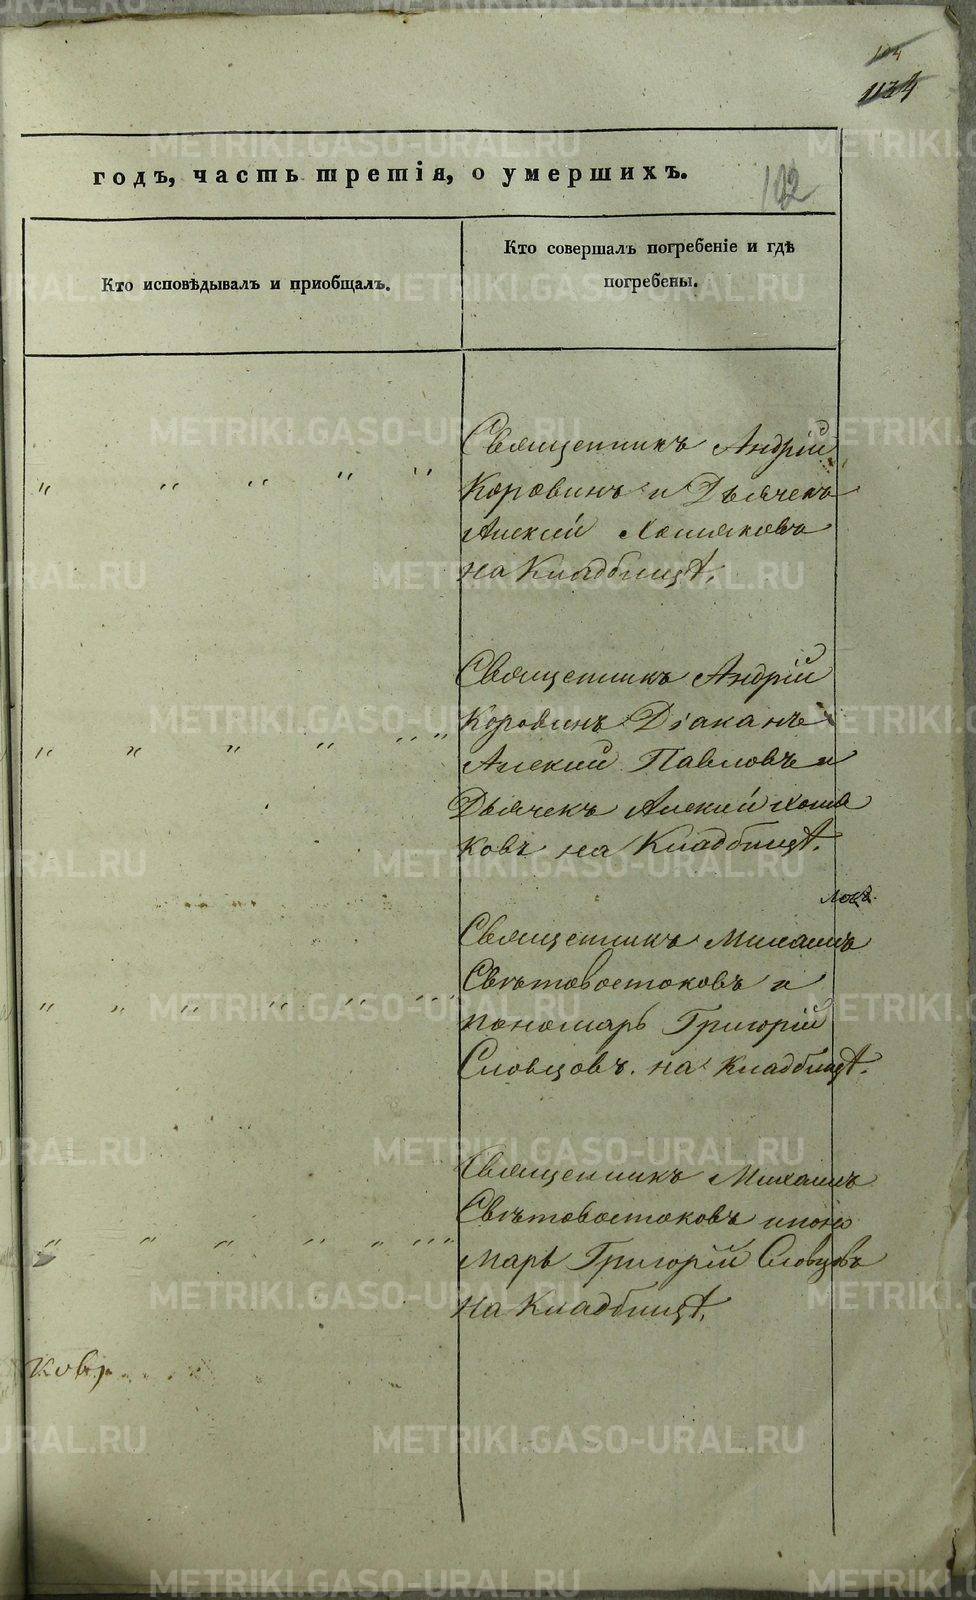 104
1134
годъ, часть третія, о умершихъ.
102
Кто исповѣдывалъ и приобщалъ.
Кто совершалъ погребеніе и гдѣ
погребены.
Священникъ Андрій
Коровинъ и Дьячекъ
Алексій Хомяковъ
на Кладбищѣ.
Священникъ Андрій
Коровинъ Діаканъ
Алексий Павловъ и
Дьячекъ Алексий Хомя
ковъ на Кладбищѣ.
Священникъ Михаилъ
Свѣтовостоковъ и
пономарь Григорій
Словцовъ. на кладбищѣ.
Священникъ Михаилъ
Свѣтовостоковъ и поно
марь Григорій Словцовъ
на Кладбищѣ.
METRIKI.GASO-URAL.RU